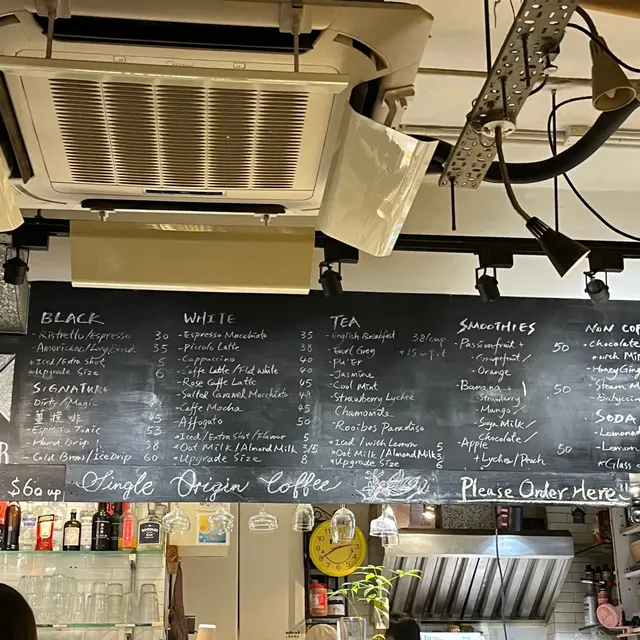 BLACK
- Ristretto/Espresso 30
- Americano/Long Black 35
- Iced/Extra Shot 5
- Upgrade Size 6
SIGNATURE
- Dirty/Magic
45
- Espresso Tonic 53
- Hand Drip 58
- Cold Brew/Ice Drip 60
WHITE
- Espresso Macchiato 35
- Piccolo Latte 38
- Cappuccino 40
- Caffe Latte/Flat White 40
- Rose Caffe Latte 45
- Salted Caramel Macchiato
- Caffe Mocha 45
- Affogato 50
*Iced/Extra Shot/Flavour 5
*Oat Milk/Almond Milk
*Upgrade Size 8
TEA
- English Breakfast 38/cup
- Earl Grey
- Pu'Er
- Jasmine
- Cool Mint
- Strawberry Lychee
- Chamomile
- Rooibos Paradiso
*Iced/with Lemon 5
*Oat Milk/Almond Milk
*Upgrade Size 6
SMOOTHIES
- Passionfruit + 50
Grapefruit/
Orange
- Banana + 50
Strawberry/
Mango/
Soya Milk/
Chocolate/
- Apple 50
+ Lychee/Peach
NON COF
- Chocolate
*with Mi
- Honey Ging
- Steam
SODA
- Lemona
- Lemon
*Glass
$60 up
Single Origin Coffee
Please Order Here